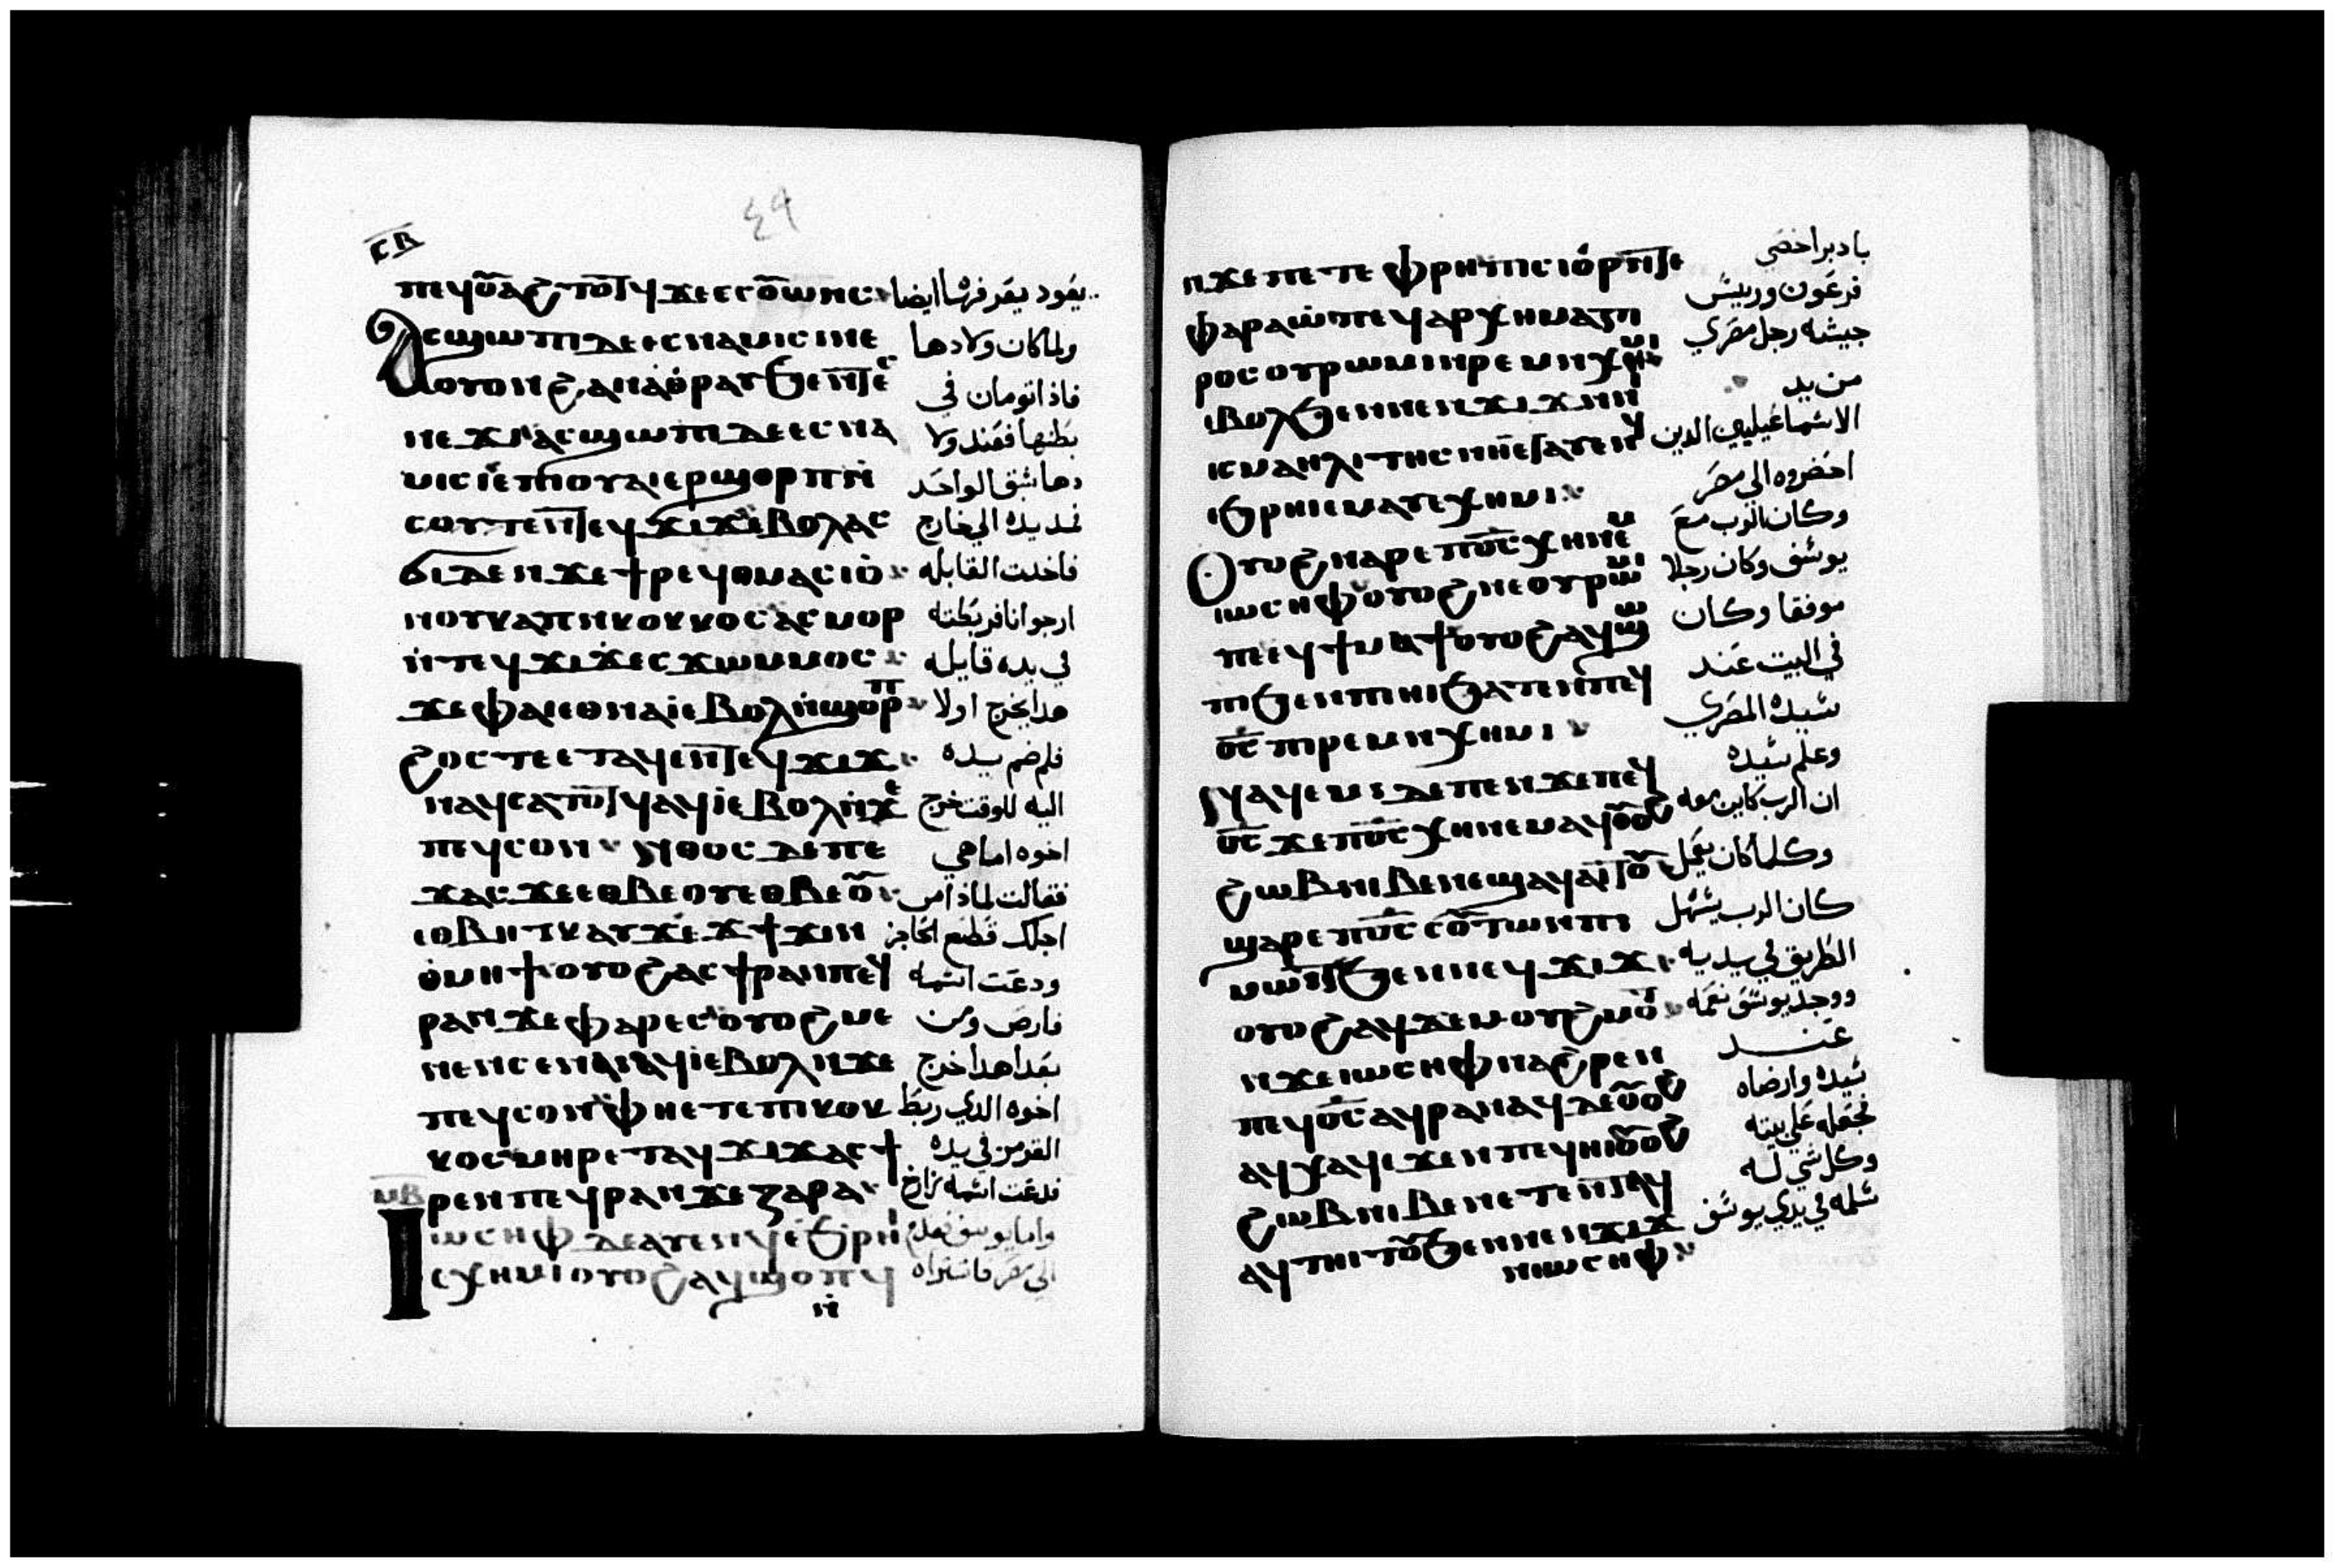 ٤٩
ⲡⲉϥⲟⲩⲁϩⲧⲟⲧϥ ϫⲉ ⲉⲥⲟⲩⲱⲛⲥ يعود يعرفها ايضا
ⲁⲥϣⲱⲡⲓ ⲇⲉ ⲉⲥⲛⲁⲙⲓⲥⲓ ⲛⲉ ولما كان ولادها
ⲟⲩⲟⲛ ϩⲁⲛⲁⲑⲣⲁⲩ ϧⲉⲛ ⲧⲉⲥ فاذا تومان في
ⲛⲉϫⲓ ⲁⲥϣⲱⲡⲓ ⲇⲉ ⲉⲥⲛⲁ بطنها فعند ولا
ⲙⲓⲥⲓ ⲉ̀ⲡⲓⲟⲩⲁⲓ ⲉⲣϣⲟⲣⲡ ⲛ̀ دها سبق الواحد
ⲥⲟⲩⲧⲉⲛ ⲧⲉϥϫⲓϫ ⲉⲃⲟⲗ ⲁⲥ فمد يده الي خارج
ϭⲓ ⲇⲉ ⲛϫⲉ ϯⲣⲉϥⲑⲙⲁⲥⲓⲟ̀ فاخذت القابله
ⲛⲟⲩⲕⲁⲡ ⲛⲕⲟⲕⲕⲟⲥ ⲁⲥⲙⲟⲣ ارجوانا فربطته
ⲛ̀ⲧⲉϥϫⲓϫ ⲉⲥϫⲱⲙⲙⲟⲥ في يده قايله
ϫⲉ ⲫⲁⲓ ⲉⲑⲛⲁⲓ̀ ⲉⲃⲟⲗ ⲛ̀ϣⲟⲣⲡ هدا يخرج اولا
ϩⲟⲥⲧⲉ ⲉⲧⲁϥⲉⲛ ⲧⲉϥϫⲓϫ فلم ضم يده
ⲛⲁϥ ⲥⲁⲧⲟⲧϥ ⲁϥⲓ̀ ⲉⲃⲟⲗ ⲛ̀ϫⲉ اليه للوقت خرج
ⲡⲉϥⲥⲟⲛ ⲛⲑⲟⲥ ⲇⲉ ⲡⲉ اخوه اما هي
ϫⲁⲥ ϫⲉ ⲉⲑⲃⲉⲟⲩ ⲉⲑⲃⲉⲟⲩ فقالت لماذا من
ⲉⲑⲃⲏⲧⲕ ⲁⲩϫⲉϫ ϯϫⲓⲛ اجلك قطع الحاجز
ⲑ̀ⲙⲏϯ ⲟⲩⲟϩ ⲁⲥϯⲣⲁⲛ ⲡⲉϥ ودعت اسمه
ⲣⲁⲛ ϫⲉ ⲫⲁⲣⲉⲥ ⲟⲩⲟϩ ⲙⲉ فارص ومن
ⲛⲉⲛⲥⲉ ⲛⲁⲓ ⲁϥⲓ̀ ⲉⲃⲟⲗ ⲛϫⲉ بعد هدا خرج
ⲡⲉϥⲥⲟⲛ ⲫⲏ ⲉⲧⲉ ⲡⲓⲕⲟⲕ اخوه الدي ربط
ⲕⲟⲥ ⲙⲏⲣ ⲉⲧⲁϥϫⲓϫ ⲁⲥϯ القرمز في يده
ⲣⲉⲛ ⲡⲉϥⲣⲁⲛ ϫⲉ ⲍⲁⲣⲁ فدعت اسمه زارخ
ⲓⲱⲥⲏⲫ ⲇⲉ ⲁⲩⲉⲛϥ ⲉ̀ϧⲣⲏⲓ واما يوسف
ⲉⲭⲏⲙⲓ ⲟⲩⲟϩ ⲁϥϣⲟⲡϥ الي مصر فاشتراه
ⲛ̀
ⲛϫⲉ ⲡⲉⲧⲉⲫⲣⲏ ⲡⲓⲥⲓⲟⲩⲣ ⲛⲧⲉ بادبرا خصي
ⲫⲁⲣⲁⲱ̀ ⲡⲉϥⲁⲣⲭⲏⲙⲁⲅⲓ فرعون ورييس
ⲣⲟⲥ ⲟⲩⲣⲱⲙⲓ ⲛⲣⲉⲙⲛⲭⲏⲙⲓ جيشه رجل مصري
ⲉⲃⲟⲗ ϧⲉⲛ ⲛⲉⲛϫⲓϫ ⲛⲛⲓ من يد
ⲓⲥⲙⲁⲏⲗⲓⲧⲏⲥ ⲛⲏ ⲉⲧⲁⲩⲉⲛϥ الاسماعيليين الدين
ⲉϧⲣⲏⲓ ⲉⲙⲁⲩ ⲉⲭⲏⲙⲓ احضروه الي مصر
ⲟⲩⲟϩ ⲛⲁⲣⲉ ⲡϭⲥ ⲭⲏ ⲛⲉⲙ وكان الرب مع
ⲓⲱⲥⲏⲫ ⲟⲩⲟϩ ⲛⲉ ⲟⲩⲣⲱⲙⲓ يوسف وكان رجلا
ⲡⲉ ⲉϥϯⲙⲁϯ ⲟⲩⲟϩ ⲁϥϣⲱ موفقا وكان
ⲡⲓ ϧⲉⲛ ⲡⲓⲏⲓ ϧⲁⲧⲉⲛ ⲡⲉϥ في البيت عند
ϭⲥ ⲡⲓⲣⲉⲙⲛⲭⲏⲙⲓ سيده المصري
ⲛⲁϥⲉⲙⲓ ⲇⲉ ⲡⲉ ⲛϫⲉ ⲡⲉϥ وعلم سيده
ϭⲥ ϫⲉ ⲡϭⲥ ⲭⲏ ⲛⲉⲙⲁϥ ⲟⲩⲟϩ ان الرب كاين معه
ϩⲱⲃ ⲛⲓⲃⲉⲛ ⲉϣⲁϥⲁⲓⲧⲟⲩ وكلما كان يعمل
ϣⲁⲣⲉ ⲡϭⲥ ⲥⲟⲩⲧⲱⲛ ⲡⲓ كان الرب يسهل
ⲙⲱⲓⲧ ϧⲉⲛ ⲛⲉϥϫⲓϫ الطريق في يديه
ⲟⲩⲟϩ ⲁϥϫⲉⲙ ⲟⲩϩⲙⲟⲧ ووجد يوسف نعمه
ⲛϫⲉ ⲓⲱⲥⲏⲫ ⲛⲁϩⲣⲉⲛ عند
ⲡⲉϥϭⲥ ⲁϥⲣⲁⲛⲁϥ ⲇⲉ ⲟⲩⲟϩ سيده وارضاه
ⲁϥⲭⲁϥ ⲉϫⲉⲛ ⲡⲉϥⲏⲓ ⲟⲩⲟϩ فجعله علي بيته
ϩⲱⲃ ⲛⲓⲃⲉⲛ ⲉⲧⲉⲛⲧⲁϥ وكل شي له
ⲁϥⲧⲏⲓⲧⲟⲩ ϧⲉⲛ ⲛⲉⲛϫⲓϫ سلمه في يدي يوسف
ⲛⲓⲱⲥⲏⲫ